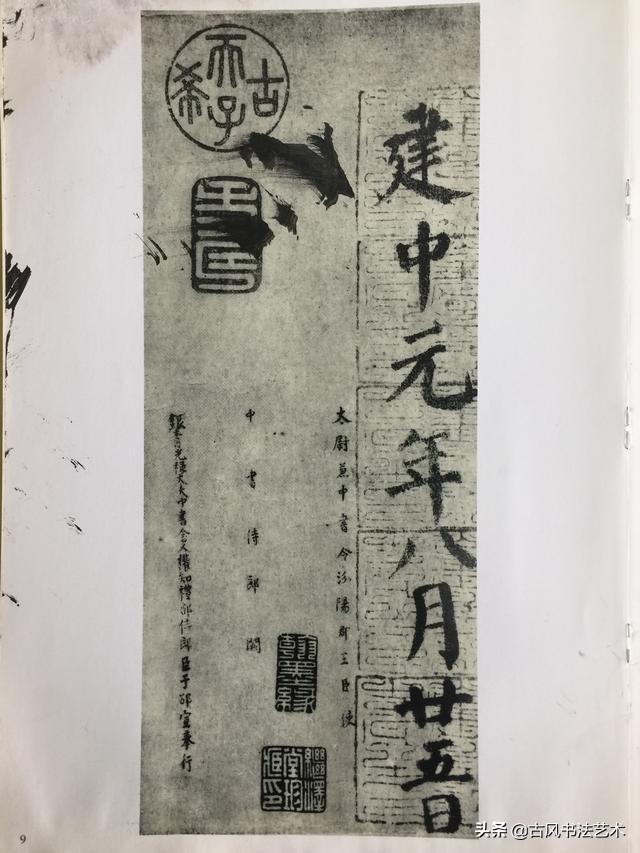 建中元年八月廿五日
太尉兼中書令汾陽郡王臣 使
中書侍郎闕
銀青光祿大夫中書舍人權知禮部侍郎臣于邵宣奉行
古希天子
翰墨緣
9
头条 @古风书法艺术